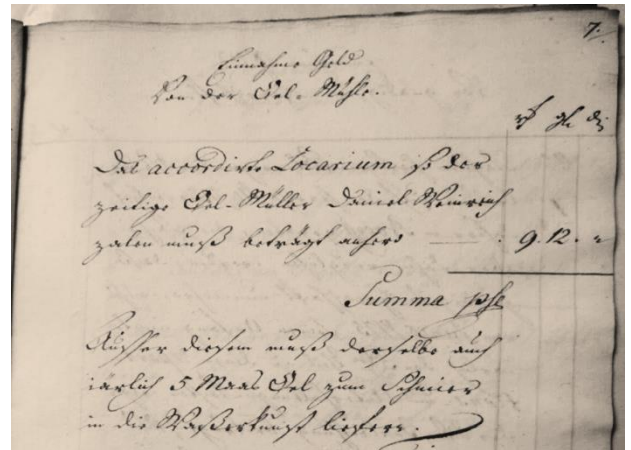 7.
Einnahme Geld
Von der Oel-Mühle.
rt gl d
Das accordirte Locarium so der
zeitige Oel-Müller Daniel Weinrich
zalen muß beträgt anhero — 9. 12. "
Summa pse
Ausser diesem muß derselbe auch
iärlich 5 Maas Oel zum Schmier
in die Waßerkunst liefern.